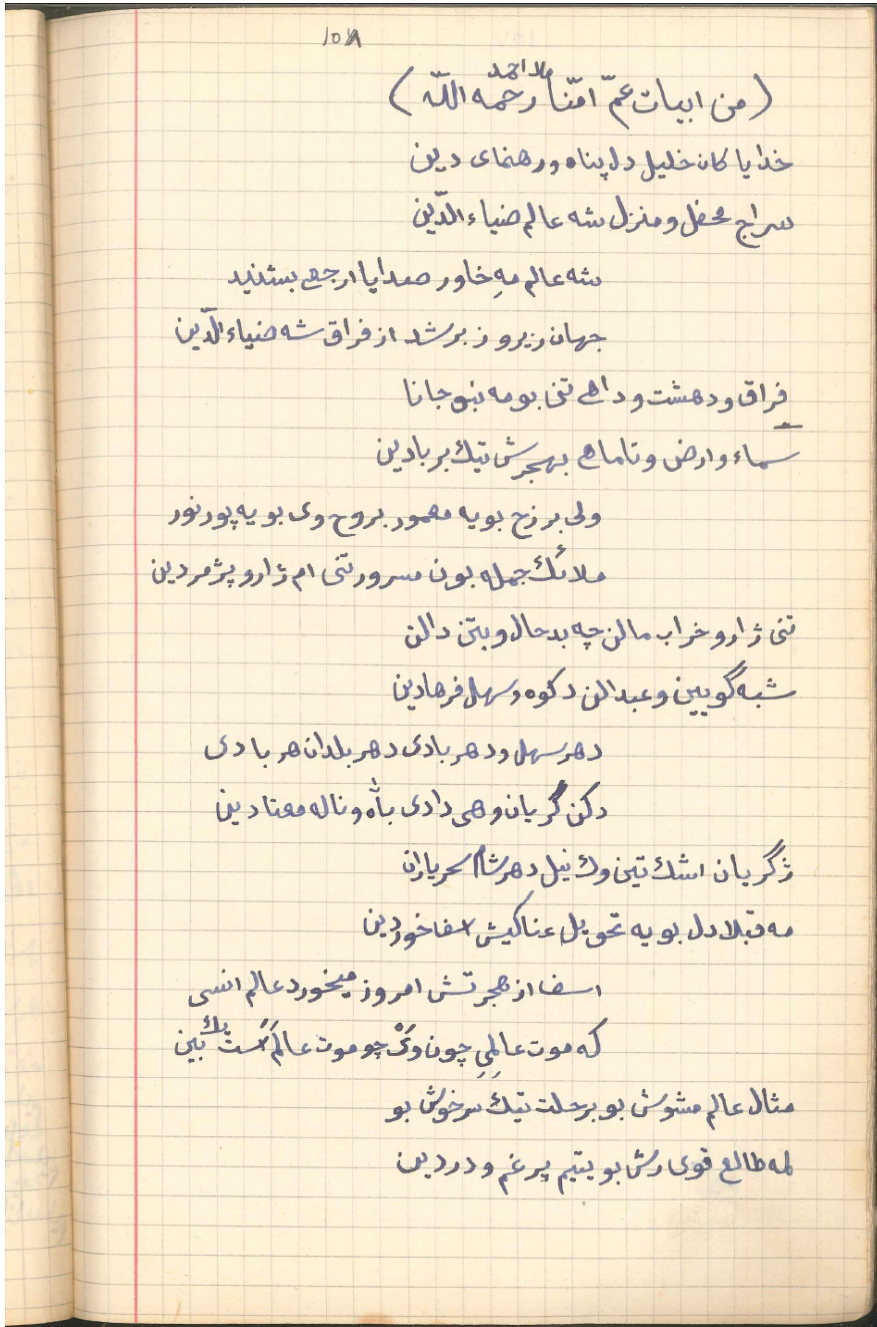 ١٥٨
(من ابيات عمّ امّنا ملا احمد رحمه اللّه)
خدايا كان خليل دل پناه ورهنماى دين
سراج محفل ومنزل شه عالم ضياء الدّين
شه عالم مهِ خاور صدايا ارجعى بشنيد
جهان زيروزبر شد از فراق شه ضياء الدّين
فراق ودهشت وداهى تنى بو مه نبو جانا
سماء وارض وتاماهى بهجرش تيك بربادين
ولى برزح بويه معمور بروح وى بويه پورنور
ملائك جمله بون مسرور تنى ام ژارو پژمردين
تنى ژارو خراب مالن چه بدحال وبتن دالن
شبه گويين وعبدالن دكوه وسهل فرهادين
دهر سهل ودهر بادى دهر بلدان هر بادى
دكن گريان وهى دادى بآه وناله معتادين
ژگريان اشك تين وك نيل دهر شام سحرياران
مه قبلا دل بويه تحويل عناكيش اسفا خوردين
اسفا از هجرتش امروز ميخورد عالم انسى
كه موت عالمِىِ چون وىْ چو موت عالمَست بين
مثال عالم مشوش بو برحلت تيك سرخوش بو
لمه طالع قوى رش بو يتيم پرغم ودردين